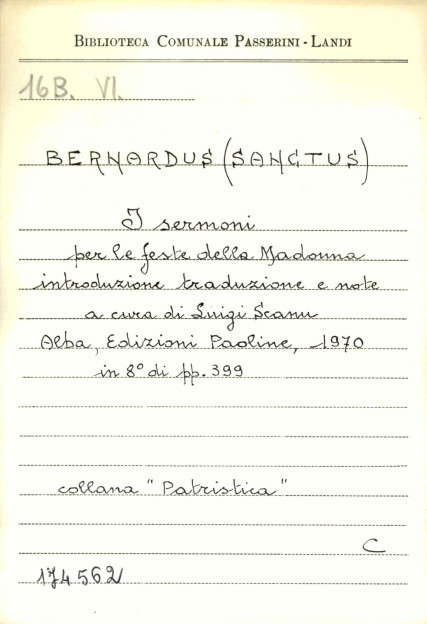 BIBLIOTECA COMUNALE PASSERINI - LANDI
16B. VI.
BERNARDUS (SANCTUS)
I sermoni
per le feste della Madonna
introduzione traduzione e note
a cura di Luigi Scanu
Alba, Edizioni Paoline, 1970
in 8° di pp. 399
collana "Patristica"
C
174562